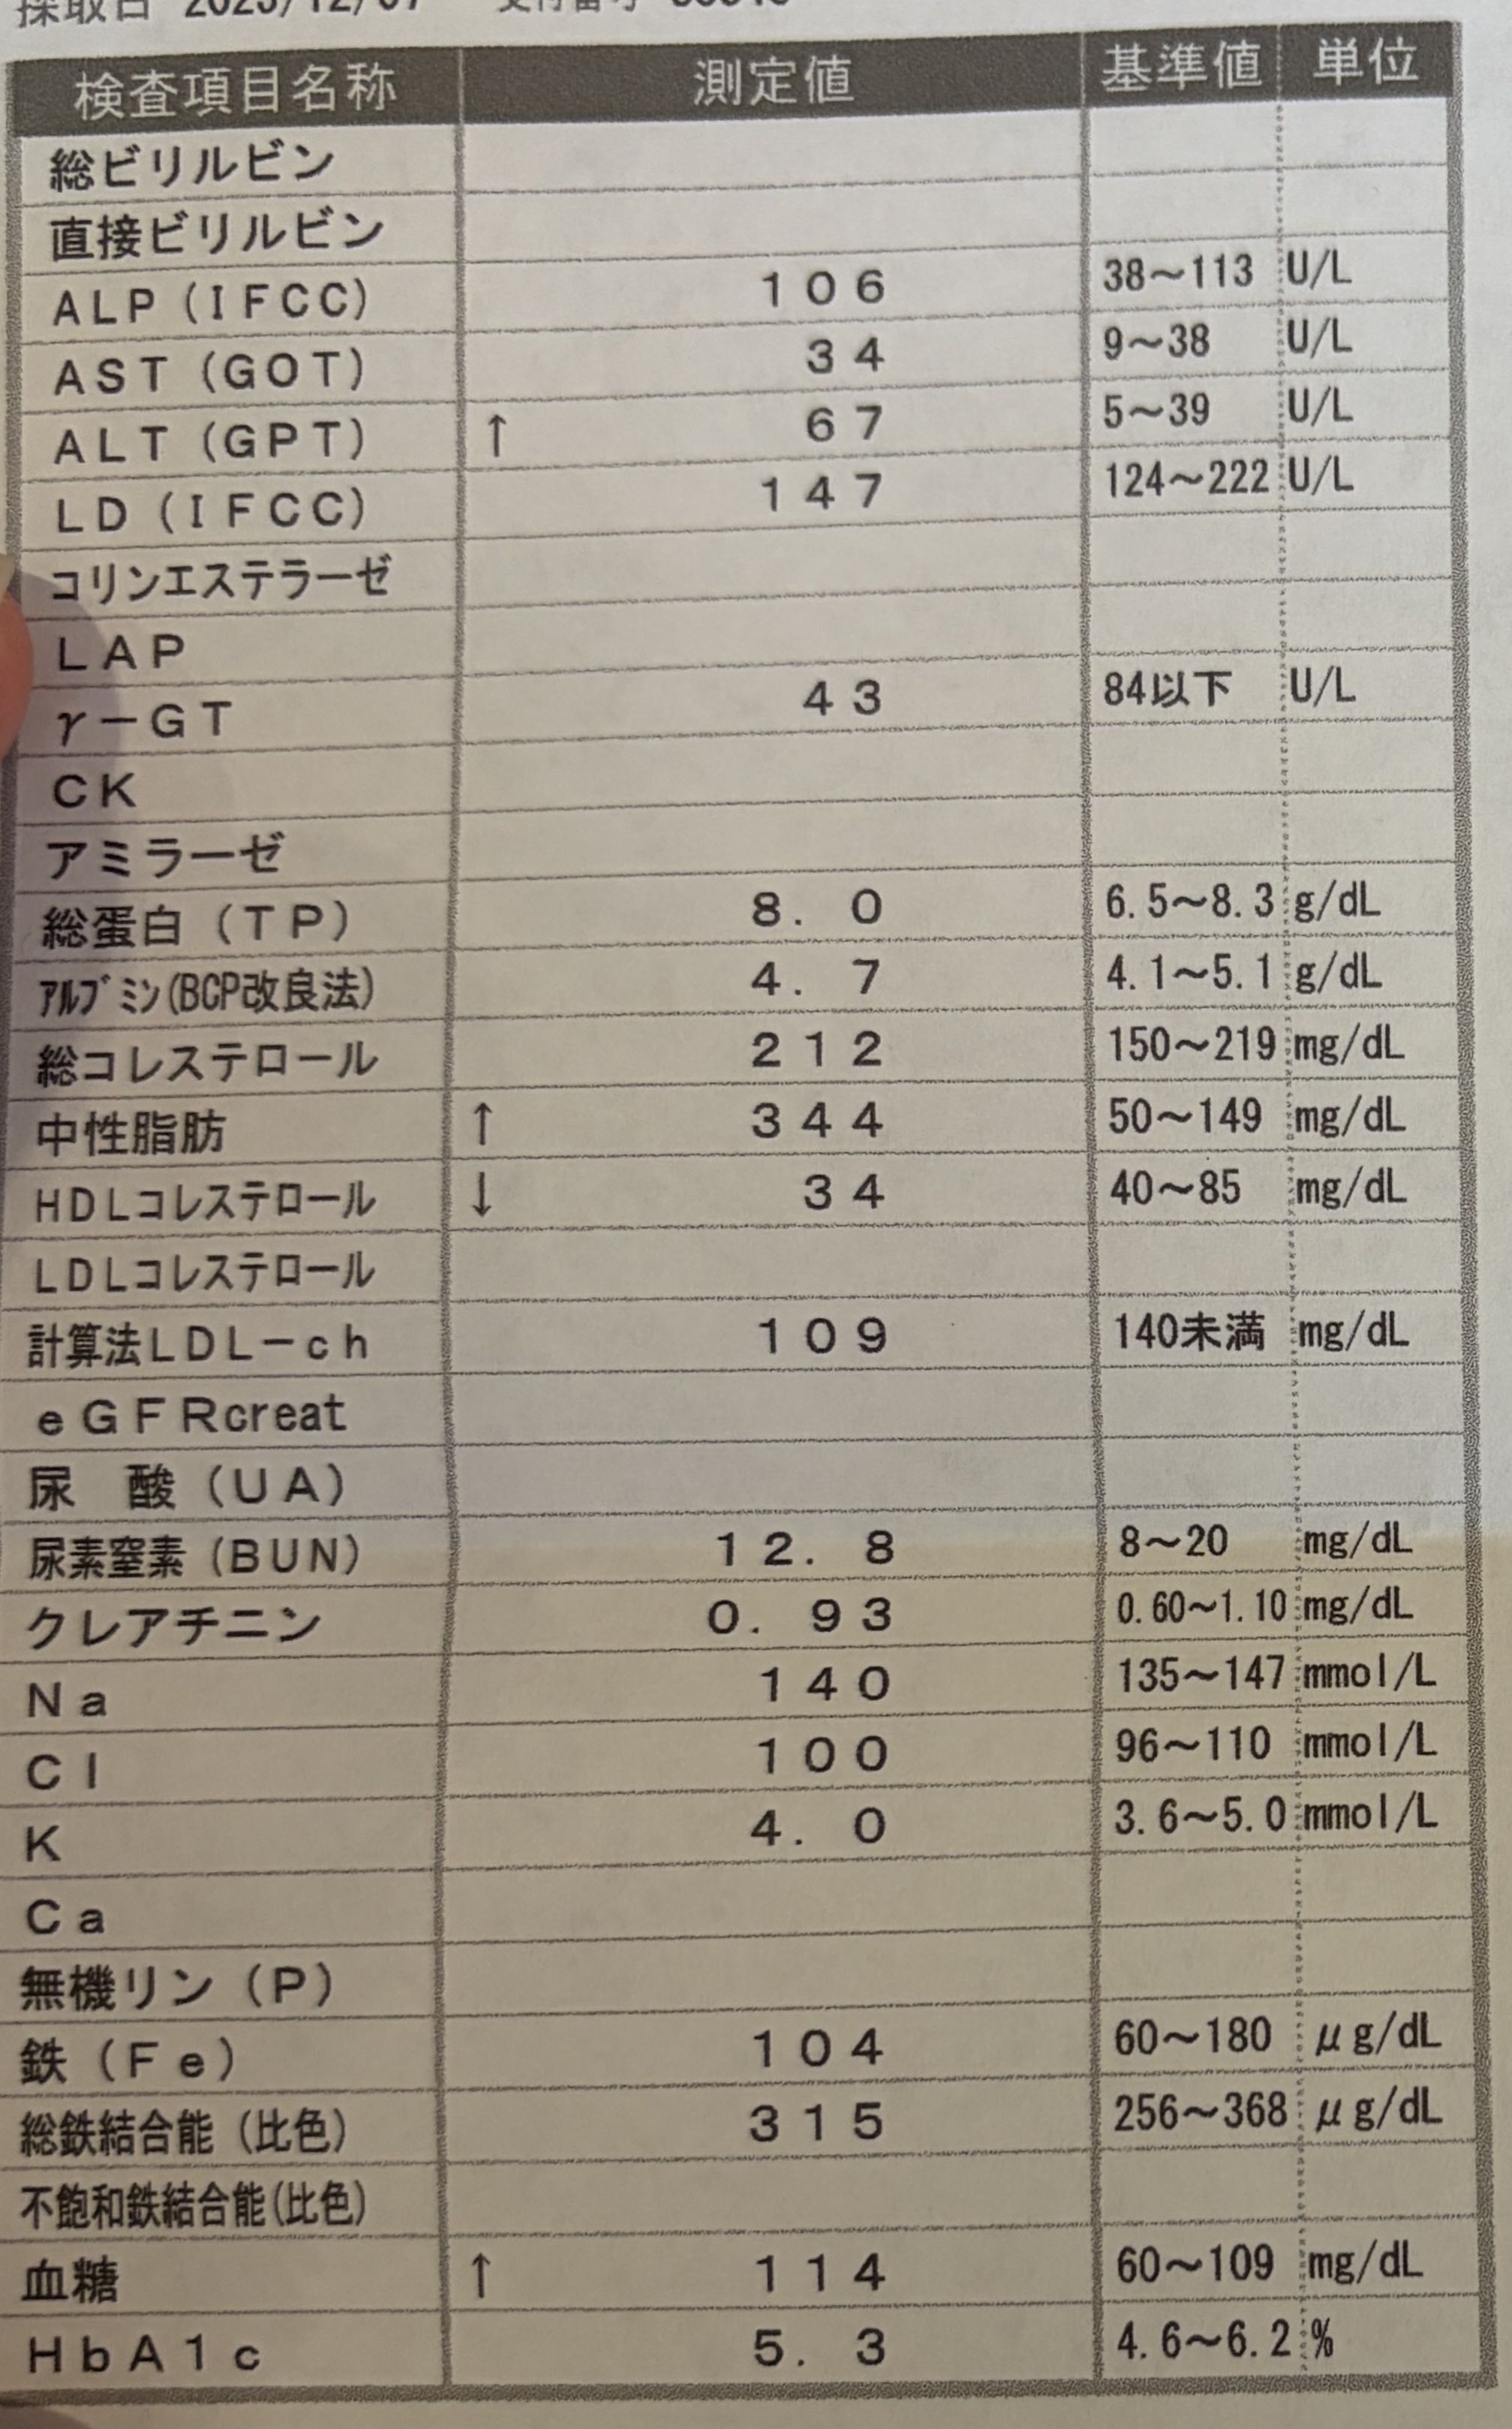 採取日
検査項目名称 測定値 基準値 単位
総ビリルビン
直接ビリルビン
ALP(IFCC) 106 38〜113 U/L
AST(GOT) 34 9〜38 U/L
ALT(GPT) ↑ 67 5〜39 U/L
LD(IFCC) 147 124〜222 U/L
コリンエステラーゼ
LAP
γ-GT 43 84以下 U/L
CK
アミラーゼ
総蛋白(TP) 8.0 6.5〜8.3 g/dL
アルブミン(BCP改良法) 4.7 4.1〜5.1 g/dL
総コレステロール 212 150〜219 mg/dL
中性脂肪 ↑ 344 50〜149 mg/dL
HDLコレステロール ↓ 34 40〜85 mg/dL
LDLコレステロール
計算法LDL-ch 109 140未満 mg/dL
eGFRcreat
尿 酸(UA)
尿素窒素(BUN) 12.8 8〜20 mg/dL
クレアチニン 0.93 0.60〜1.10 mg/dL
Na 140 135〜147 mmol/L
Cl 100 96〜110 mmol/L
K 4.0 3.6〜5.0 mmol/L
Ca
無機リン(P)
鉄(Fe) 104 60〜180 μg/dL
総鉄結合能(比色) 315 256〜368 μg/dL
不飽和鉄結合能(比色)
血糖 ↑ 114 60〜109 mg/dL
HbA1c 5.3 4.6〜6.2 %